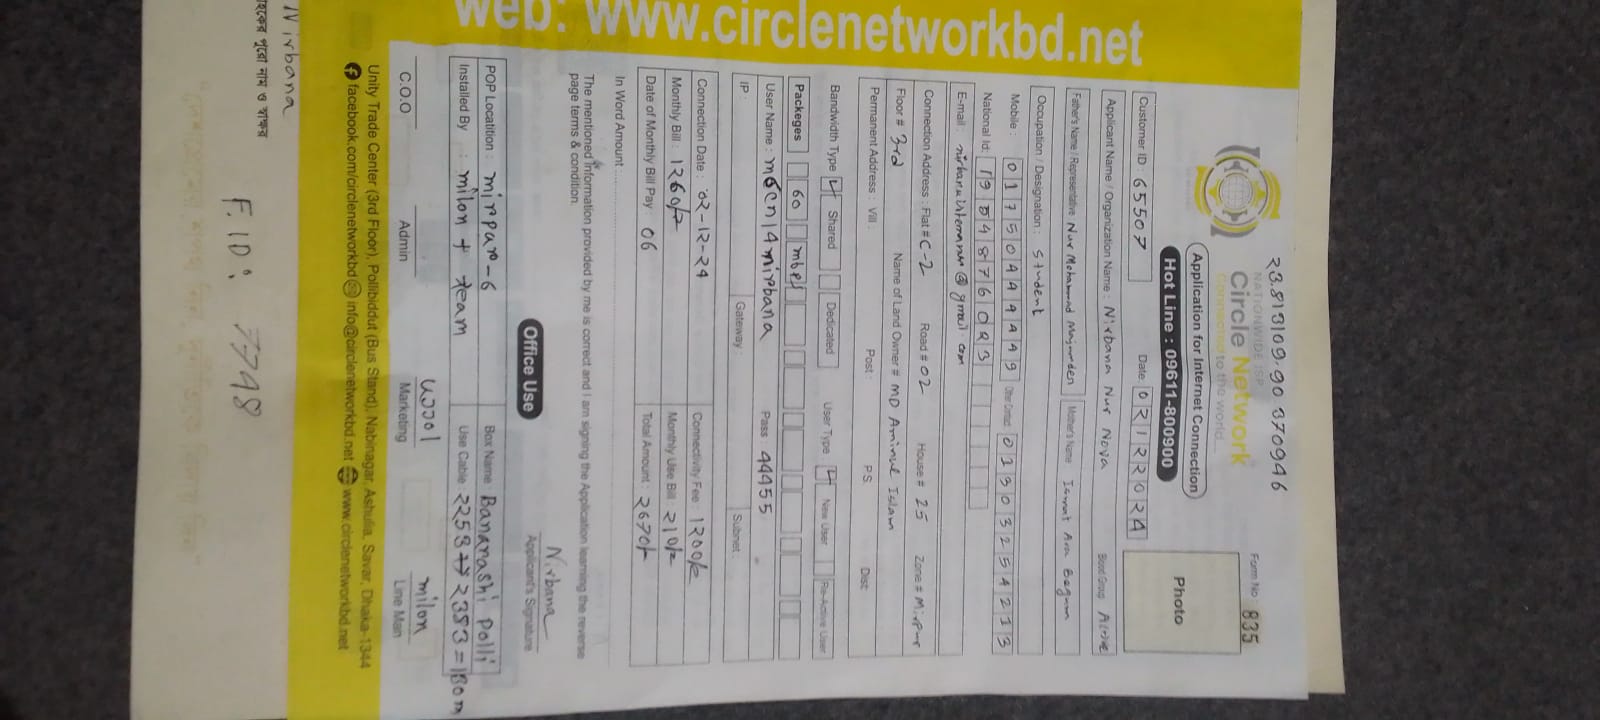 web: www.circlenetworkbd.net
NATIONWIDE ISP
Circle Network
Connected to the world
Form No 835
Application for Internet Connection
Hot Line : 09611-800900
Photo
Customer ID : 65507 Date 02122024
Applicant Name / Organization Name : Nirbana Nur Nova Blood Group
Father's Name / Representative Nur Mohammad Mother's Name Ara Begum
Occupation / Designation : Student
Mobile : 01750444449 Other Contact 01303254213
National Id:
E-mail : @gmail.com
Connection Address : Flat # C-2 Road # 02 House # 25 Zone # Mirpur
Floor # 3rd Name of Land Owner # MD Aminul Islam
Permanent Address : Vill : Post : P.S. Dist:
Bandwidth Type Shared Dedicated User Type New User Re-Active User
Packeges 60 mbps
User Name : Pass : 44455
IP : Gateway : Subnet :
Connection Date : 02-12-24 Connectivity Fee : 1200/-
Monthly Bill : 1260/- Monthly Use Bill : 210/-
Date of Monthly Bill Pay : 06 Total Amount : 2670/-
In Word Amount
The mentioned information provided by me is correct and I am signing the Application learning the reverse
page terms & condition.
Nirbana
Applicant's Signature
Office Use
POP Locatition : mirpur-6 Box Name : Banarashi polli
Installed By : milon + team Use Cable :
milon
C.O.O Admin Marketing Line Man
Unity Trade Center (3rd Floor), Pollibiddut (Bus Stand), Nabinagar, Ashulia, Savar, Dhaka-1344
facebook.com/circlenetworkbd info@circlenetworkbd.net www.circlenetworkbd.net
Nirbana
পুরো নাম ও স্বাক্ষর
F.ID: 7748